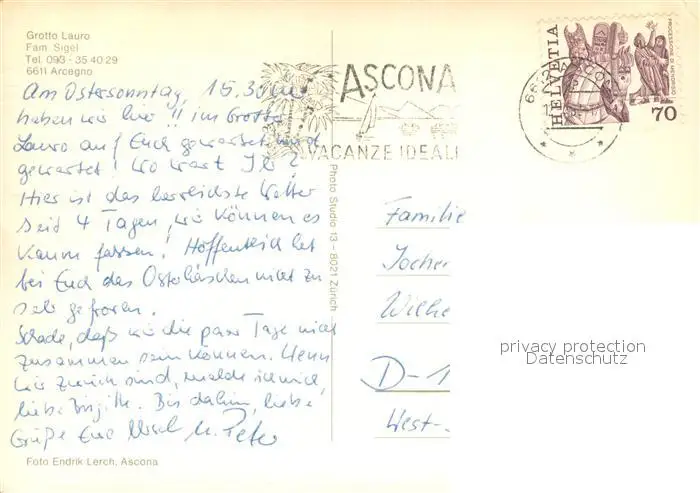 Grotto Lauro
Fam. Sigel
Tel. 093 - 35 40 29
6611 Arcegno
Am Ostersonntag, 15.30 Uhr
haben wir hier !! im Grotto
Lauro auf Euch gewartet und
gewartet! Wo wart Ihr?
Hier ist das herrlichste Wetter
seit 4 Tagen, wir können es
kaum fassen! Hoffentlich hat
bei Euch das Osterhäschen nicht zu
sehr gefroren.
Schade, daß wir die paar Tage nicht
zusammen sein können. Wenn
wir zurück sind, melde ich mich,
liebe Brigitte. Bis dahin, liebe
Grüße Eure Ursel u. Peter
Foto Endrik Lerch, Ascona
Photo Studio 13 - 8021 Zürich
ASCONA
VACANZE IDEALI
HELVETIA
PROCESSIONI DI MENDRISIO
70
Familie
Jochen
Wilhe
D-1
West-
privacy protection
Datenschutz